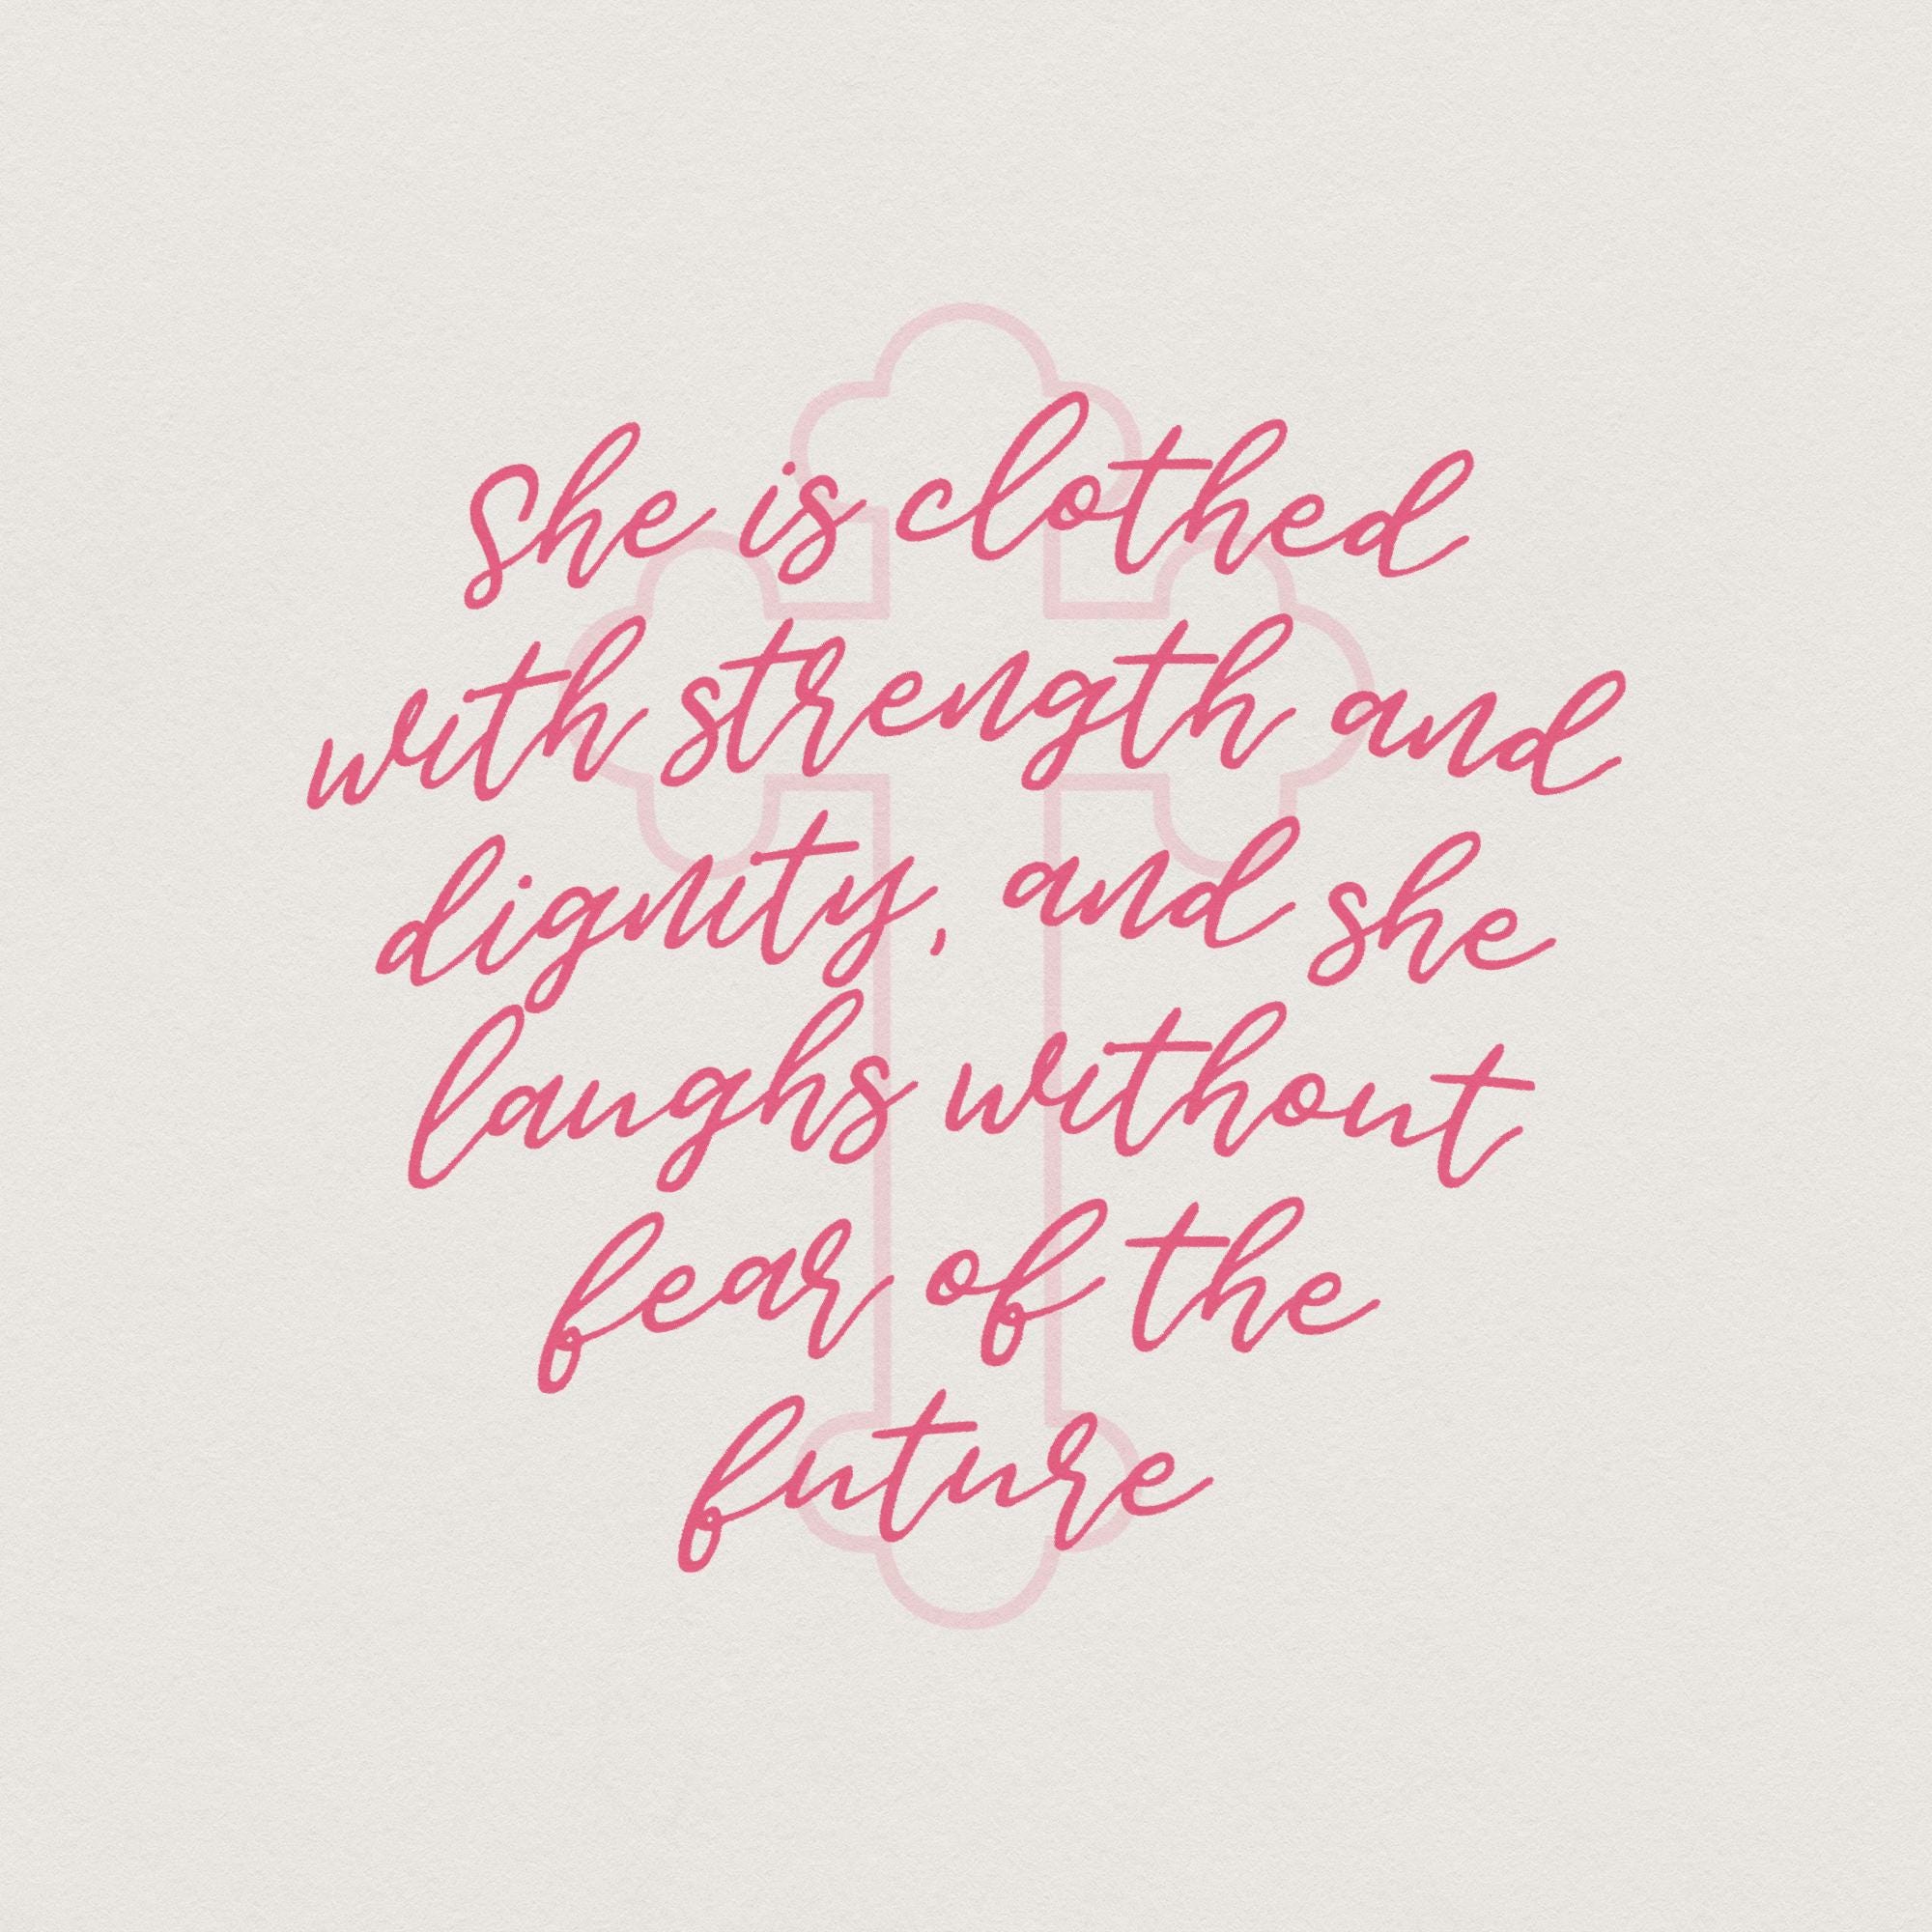 She is clothed
with strength and
dignity, and she
laughs without
fear of the
future